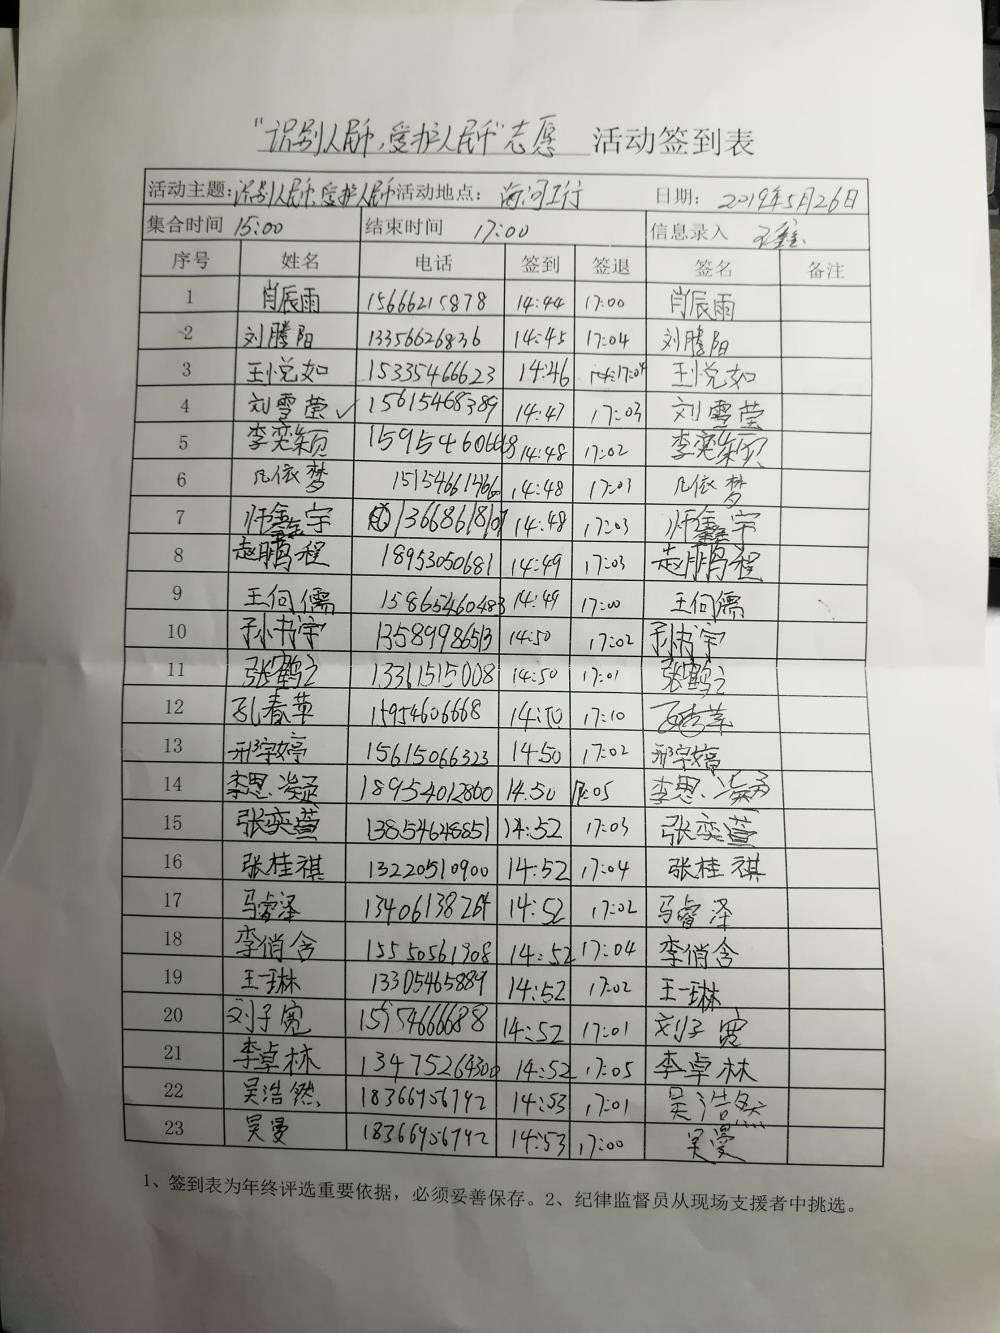 “识别人民币,爱护人民币”志愿 活动签到表
活动主题:识别人民币,爱护人民币 活动地点: 海河工行 日期: 2019年5月26日
集合时间 15:00 结束时间 17:00 信息录入 王鑫
序号 姓名 电话 签到 签退 签名 备注
1 肖辰雨 15666215878 14:44 17:00 肖辰雨
2 刘腾阳 13356626836 14:45 17:04 刘腾阳
3 王悦如 15335466623 14:46 17:04 王悦如
4 刘雪莹 ✓ 15615468389 14:47 17:03 刘雪莹
5 李奕颖 14:48 17:02 李奕颖
6 凡依梦 14:48 17:03 凡依梦
7 师鑫宇 14:48 17:03 师鑫宇
8 赵鹏程 18953050681 14:49 17:03 赵鹏程
9 王何儒 15865460483 14:49 17:00 王何儒
10 孙书宇 13589986513 14:50 17:02 孙书宇
11 张鹤之 13361515008 14:50 17:01 张鹤之
12 孔春草 15954606668 14:50 17:10
13 邢宇婷 15615066323 14:50 17:02 邢宇婷
14 李思凝 18954012860 14:50 17:05 李思凝
15 张奕萱 13854648851 14:52 17:03 张奕萱
16 张桂祺 13220510900 14:52 17:04 张桂祺
17 马睿泽 13406138264 14:52 17:02 马睿泽
18 李俏含 15550561908 14:52 17:04 李俏含
19 王一琳 13305465889 14:52 17:02 王一琳
20 刘子宽 15954666688 14:52 17:01 刘子宽
21 李卓林 13475264300 14:52 17:05 李卓林
22 吴浩然 18366956792 14:53 17:01 吴浩然
23 吴曼 18366956792 14:53 17:00 吴曼
1、签到表为年终评选重要依据,必须妥善保存。2、纪律监督员从现场支援者中挑选。